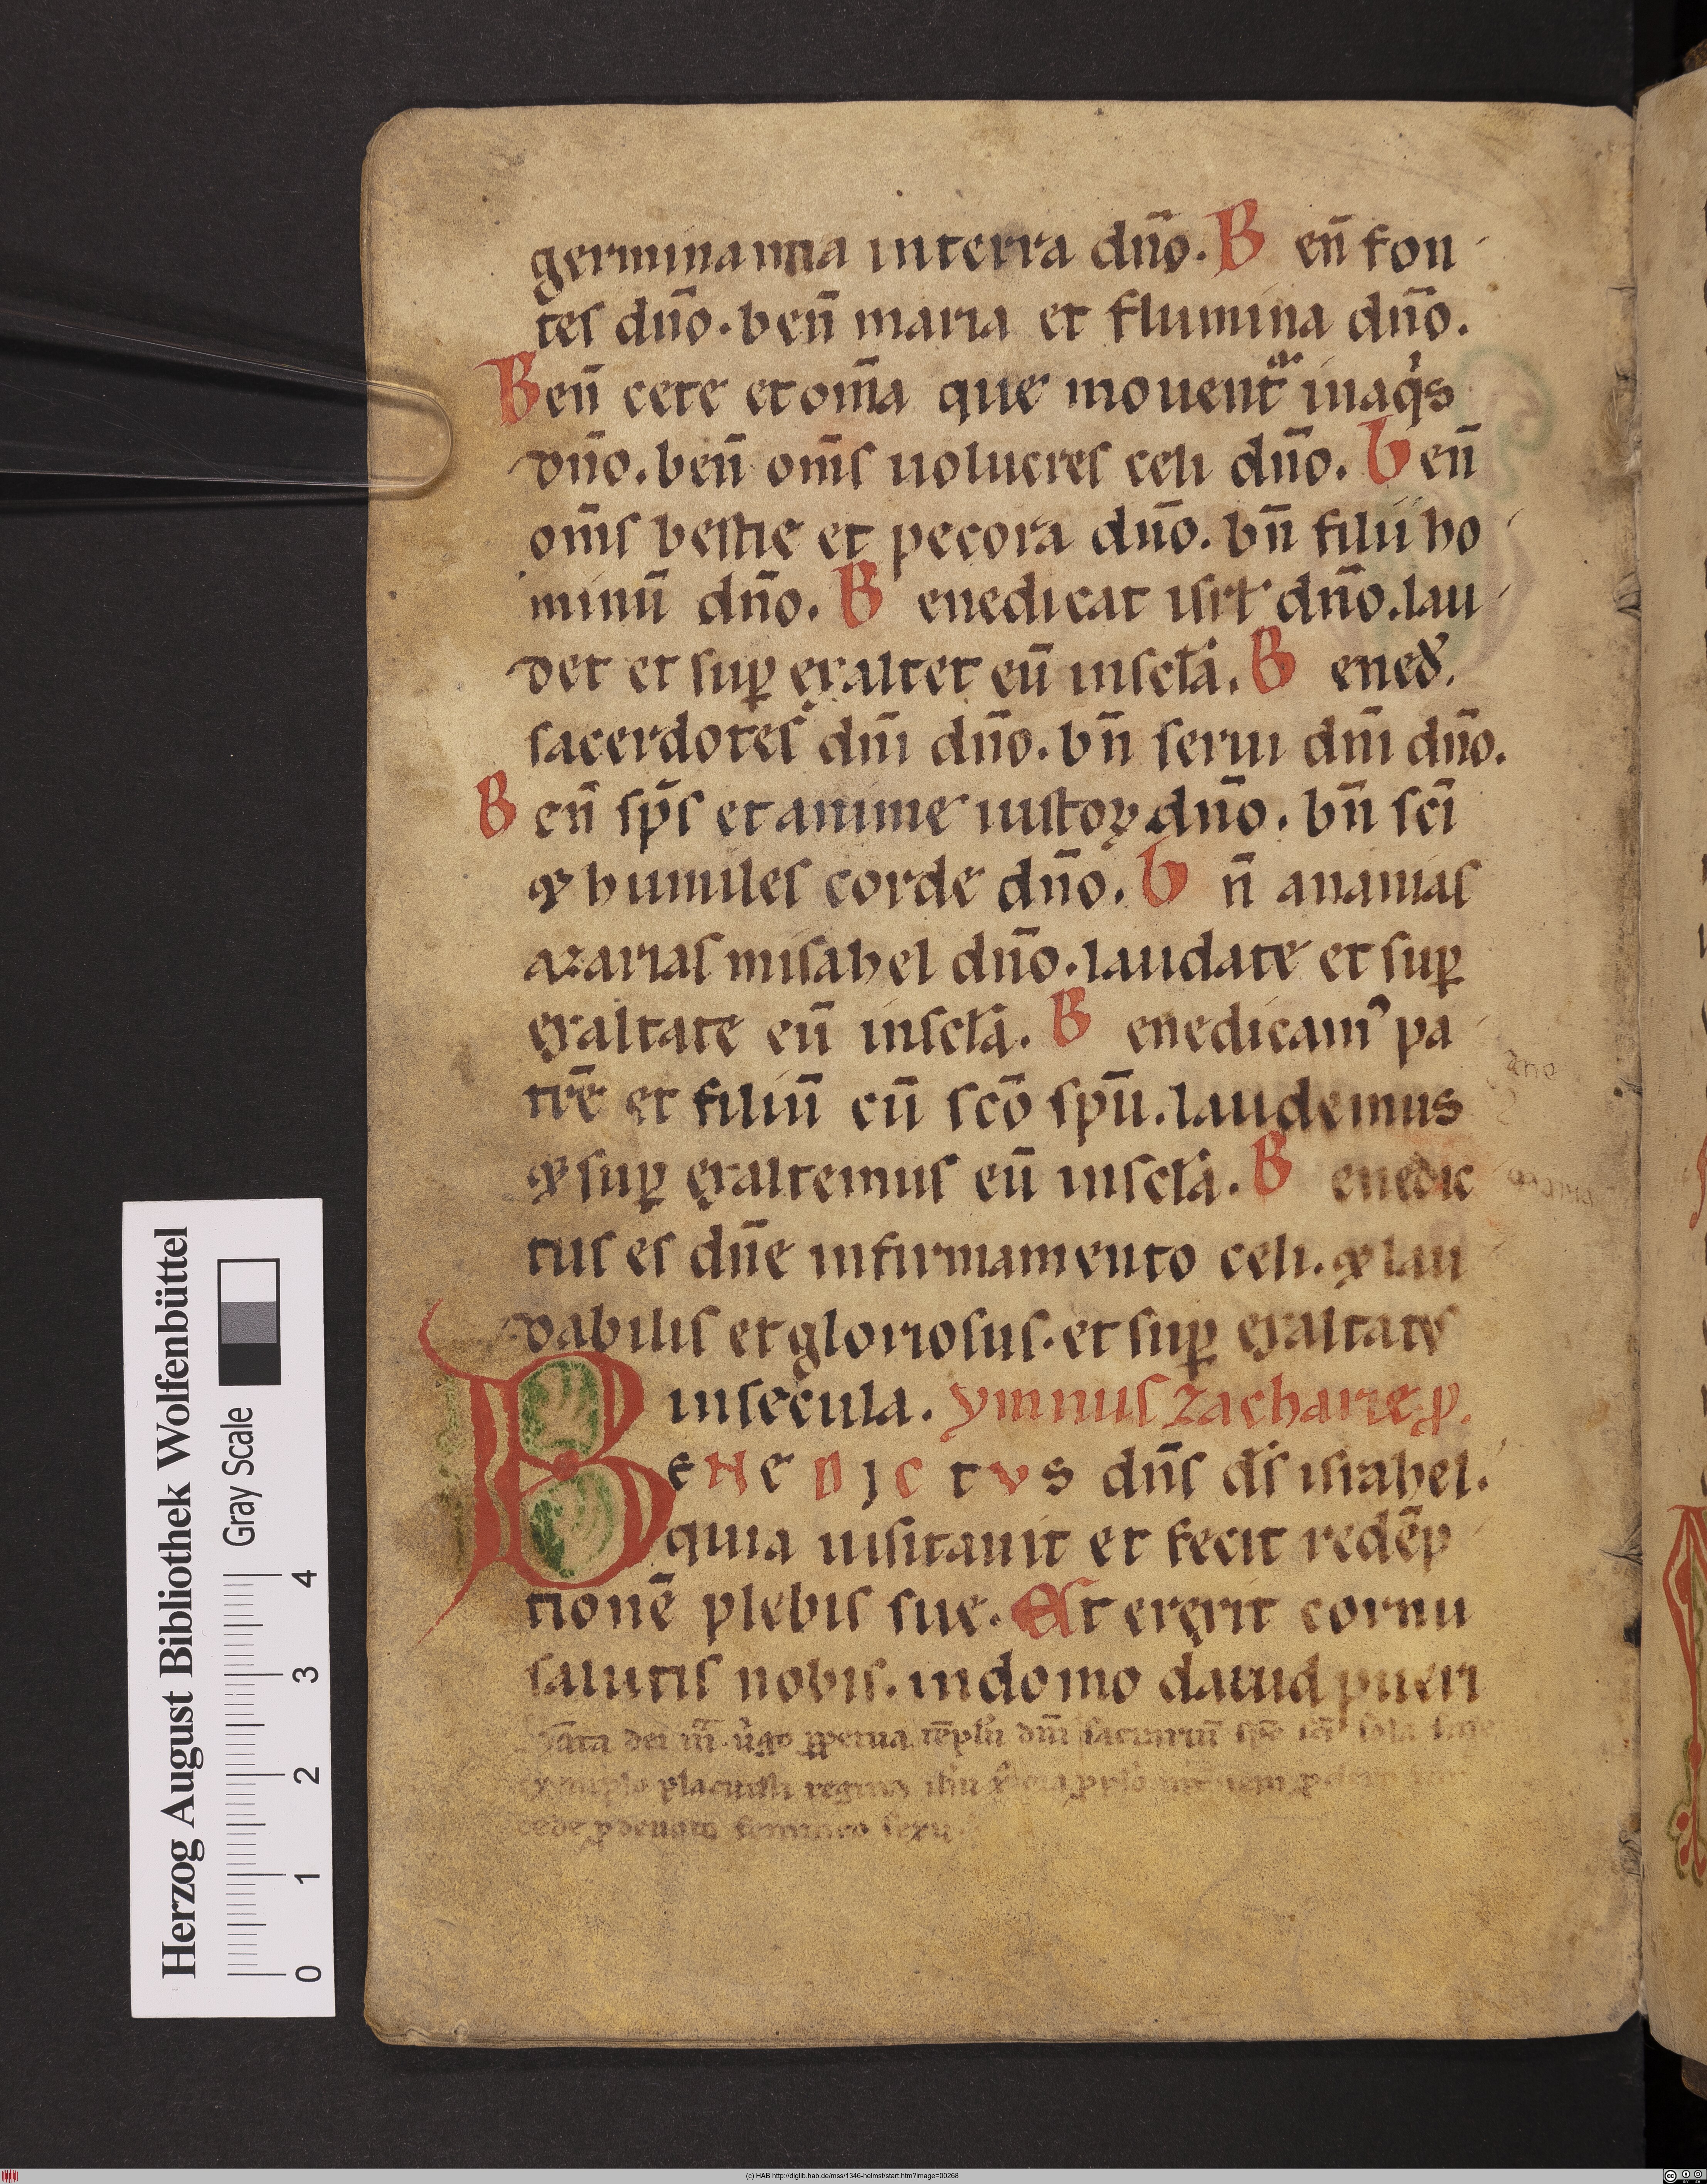 germinantia in terra dn̄o. B en̄ fon
tes dn̄o. ben̄ maria et flumina dn̄o.
Ben̄ cete et om̄a que mouent᷑ in aq̇s
dn̄o. ben̄ om̄s uolucres celi dn̄o. ben̄
om̄s bestie et pecora dn̄o. bn̄ filii ho
minū dn̄o. B enedicat isrƚ dn̄o. lau
det et suꝑ exaltet eū in scƚa. B ened.
sacerdotes dn̄i dn̄o. bn̄ serui dn̄i dn̄o.
B en̄ sp̄s et anime iustoꝝ dn̄o. bn̄ sc̄i
& humiles corde dn̄o. b n̄ ananias
azarias misahel dn̄o. laudate et suꝑ
exaltate eū in scƚa. B enedicamꝰ pa
trē et filiū cū sc̄o sp̄u. laudemus
& suꝑ exaltemus eū in scƚa. B enedic
tus es dn̄e in firmamento celi. & lau
dabilis et gloriosus. et suꝑ exaltatus
in secula. ymnus zacharie ꝓ.
BENEDICTVS dn̄s d̄s israhel.
quia uisitauit et fecit redēp
tionē plebis sue. Et erexit cornu
salutis nobis. in domo dauid pueri
dei uͥgo ꝑpetua tēplū dn̄i sacrariū sp̄c sc̄i sola sine
exemplo placuisti
femineo sexu
Herzog August Bibliothek Wolfenbüttel
Gray Scale
0 1 2 3 4
(c) HAB http://diglib.hab.de/mss/1346-helmst/start.htm?image=00268